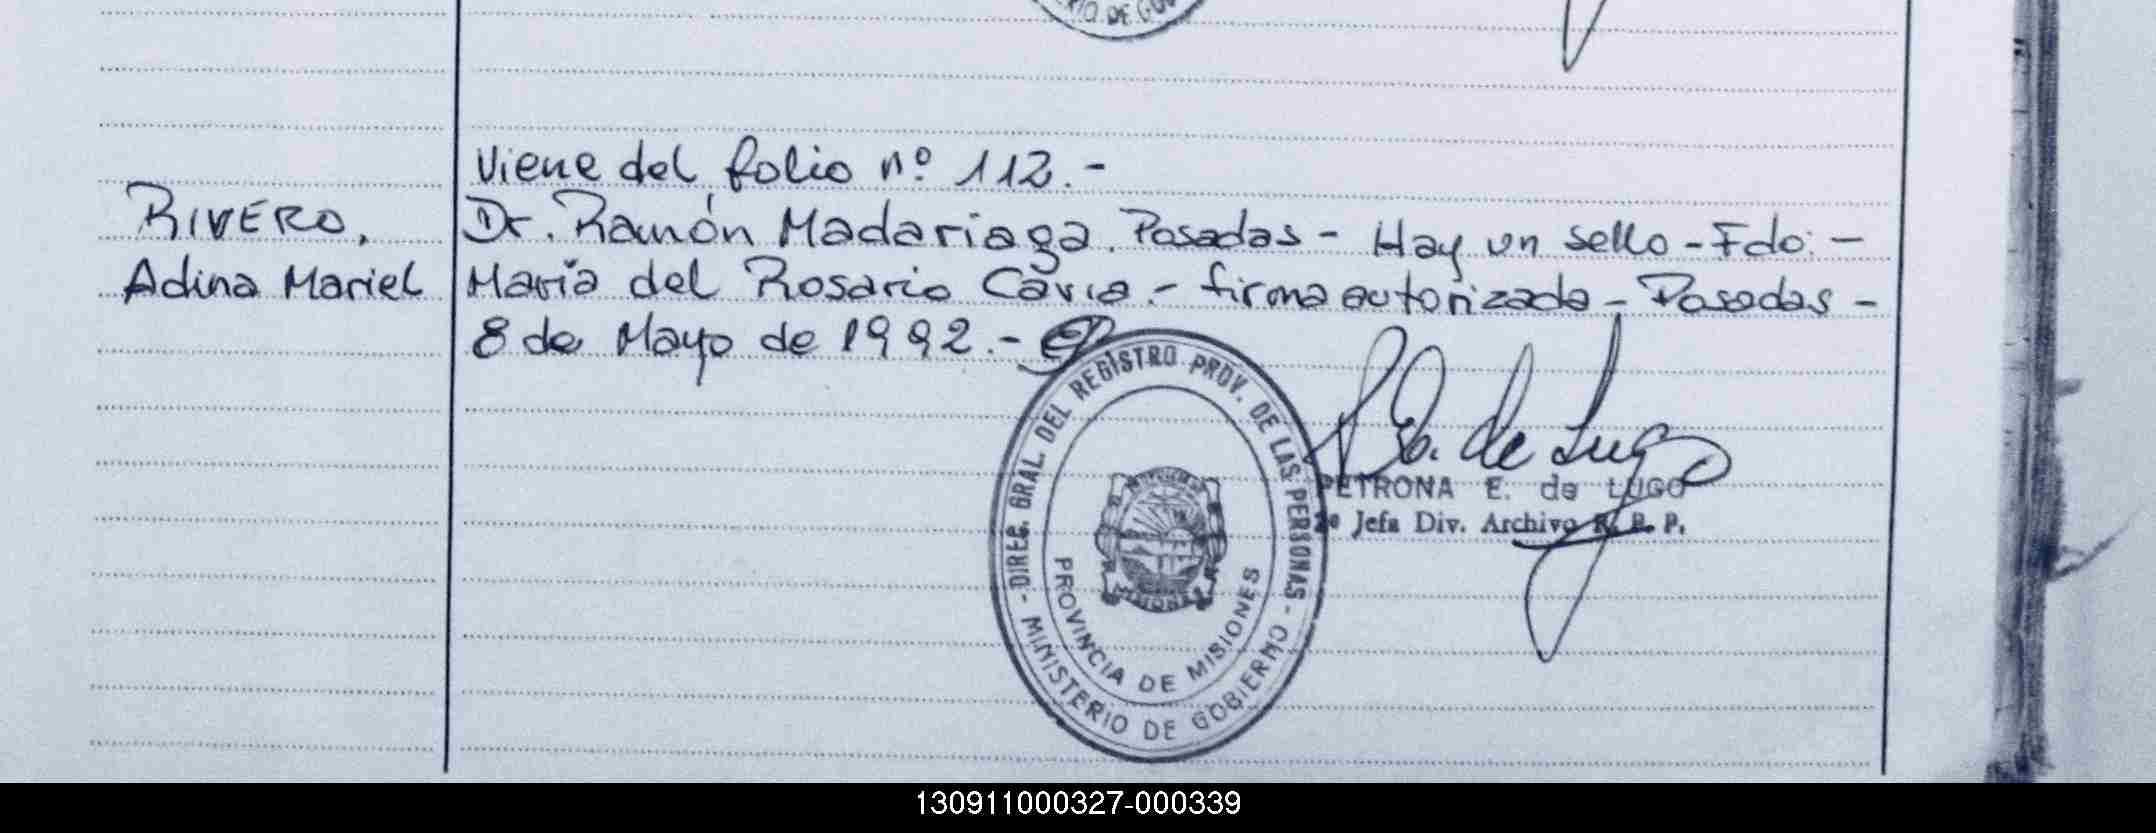 RIO DE GO
Viene del folio nº 112.-
RIVERO,
Adina Mariel
Dr. Ramón Madariaga. Posadas - Hay un sello - Fdo: -
María del Rosario Cavia.- firma autorizada - Posadas -
8 de Mayo de 1992.-
- DIREC. GRAL. DEL REGISTRO PROV. DE LAS PERSONAS -
MINISTERIO DE GOBIERNO
PROVINCIA DE MISIONES
de Lugo
PETRONA E. de LUGO
2º Jefa Div. Archivo R. P. P.
130911000327-000339